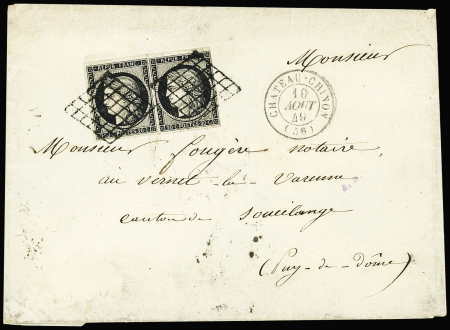 REPUB. FRANC. REPUB. FRANC.
20 C. POSTES 20 C.
Monsieur
CHATEAU-CHINON
10
AOUT
49
(56)
Monsieur fougère notaire
au vernet-la-Varenne
canton de Saucilange
(Puy-de-dôme)